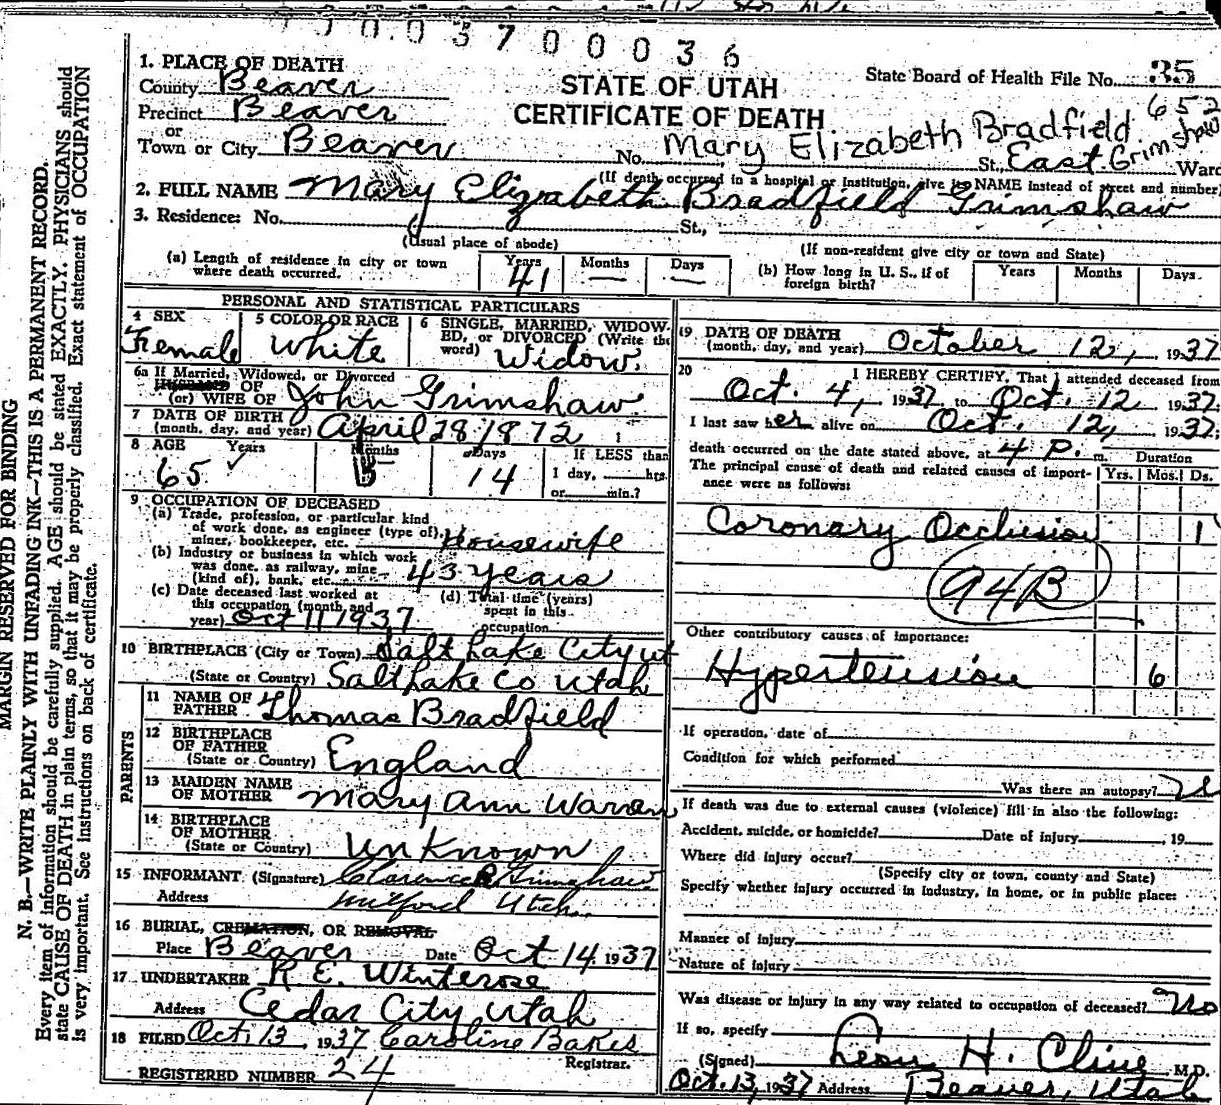 3 7 0 0 0 3 6
1. PLACE OF DEATH
County Beaver
Precinct Beaver
or
Town or City Beaver
STATE OF UTAH
CERTIFICATE OF DEATH
State Board of Health File No. 35
652
Mary Elizabeth Bradfield Grimshaw
No. St., East Ward
(If death occurred in a hospital or institution, give its NAME instead of street and number)
2. FULL NAME Mary Elizabeth Bradfield Grimshaw
3. Residence: No. St.,
(Usual place of abode) (If non-resident give city or town and State)
(a) Length of residence in city or town where death occurred. Years 41 Months — Days —
(b) How long in U. S., if of foreign birth? Years Months Days
PERSONAL AND STATISTICAL PARTICULARS
4 SEX Female
5 COLOR OR RACE White
6 SINGLE, MARRIED, WIDOWED, or DIVORCED (Write the word) Widow.
6a If Married, Widowed, or Divorced
HUSBAND OF
(or) WIFE OF John Grimshaw
7 DATE OF BIRTH
(month, day, and year) April 28 1872
8 AGE Years 65 ✓ Months Days 14
If LESS than
1 day, hrs.
or min.?
9 OCCUPATION OF DECEASED
(a) Trade, profession, or particular kind
of work done, as engineer (type of),
miner, bookkeeper, etc. Housewife
(b) Industry or business in which work
was done, as railway, mine
(kind of), bank, etc. 43 years
(c) Date deceased last worked at
this occupation (month and
year) Oct 11 1937
(d) Total time (years)
spent in this
occupation
10 BIRTHPLACE (City or Town) Salt Lake City ut
(State or Country) Salt Lake Co Utah
PARENTS
11 NAME OF
FATHER Thomas Bradfield
12 BIRTHPLACE
OF FATHER
(State or Country) England
13 MAIDEN NAME
OF MOTHER Mary Ann Warren
14 BIRTHPLACE
OF MOTHER
(State or Country) Unknown
15 INFORMANT (Signature) Clarence Grimshaw
Address Milford Utah
16 BURIAL, CREMATION, OR REMOVAL
Place Beaver Date Oct 14, 1937
17 UNDERTAKER R. E. Winterose
Address Cedar City Utah
18 FILED Oct. 13, 1937 Caroline Bakes
Registrar.
REGISTERED NUMBER 24
19 DATE OF DEATH
(month, day, and year) October 12, 1937
20 I HEREBY CERTIFY, That I attended deceased from
Oct. 4, 1937, to Oct. 12 1937;
I last saw her alive on Oct. 12, 1937;
death occurred on the date stated above, at 4 P. m.
Duration
The principal cause of death and related causes of importance were as follows: Yrs. Mos. Ds.
Coronary Occlusion 1
94B
Other contributory causes of importance:
Hypertension 6
If operation, date of
Condition for which performed
Was there an autopsy?
If death was due to external causes (violence) fill in also the following:
Accident, suicide, or homicide? Date of injury , 19
Where did injury occur?
(Specify city or town, county and State)
Specify whether injury occurred in industry, in home, or in public place:
Manner of injury
Nature of injury
Was disease or injury in any way related to occupation of deceased? No
If so, specify
(Signed) Leon H. Cline, M.D.
Oct. 13, 1937 Address Beaver, Utah
MARGIN RESERVED FOR BINDING
N. B.—WRITE PLAINLY WITH UNFADING INK—THIS IS A PERMANENT RECORD.
Every item of information should be carefully supplied. AGE should be stated EXACTLY. PHYSICIANS should
state CAUSE OF DEATH in plain terms, so that it may be properly classified. Exact statement of OCCUPATION
is very important. See instructions on back of certificate.